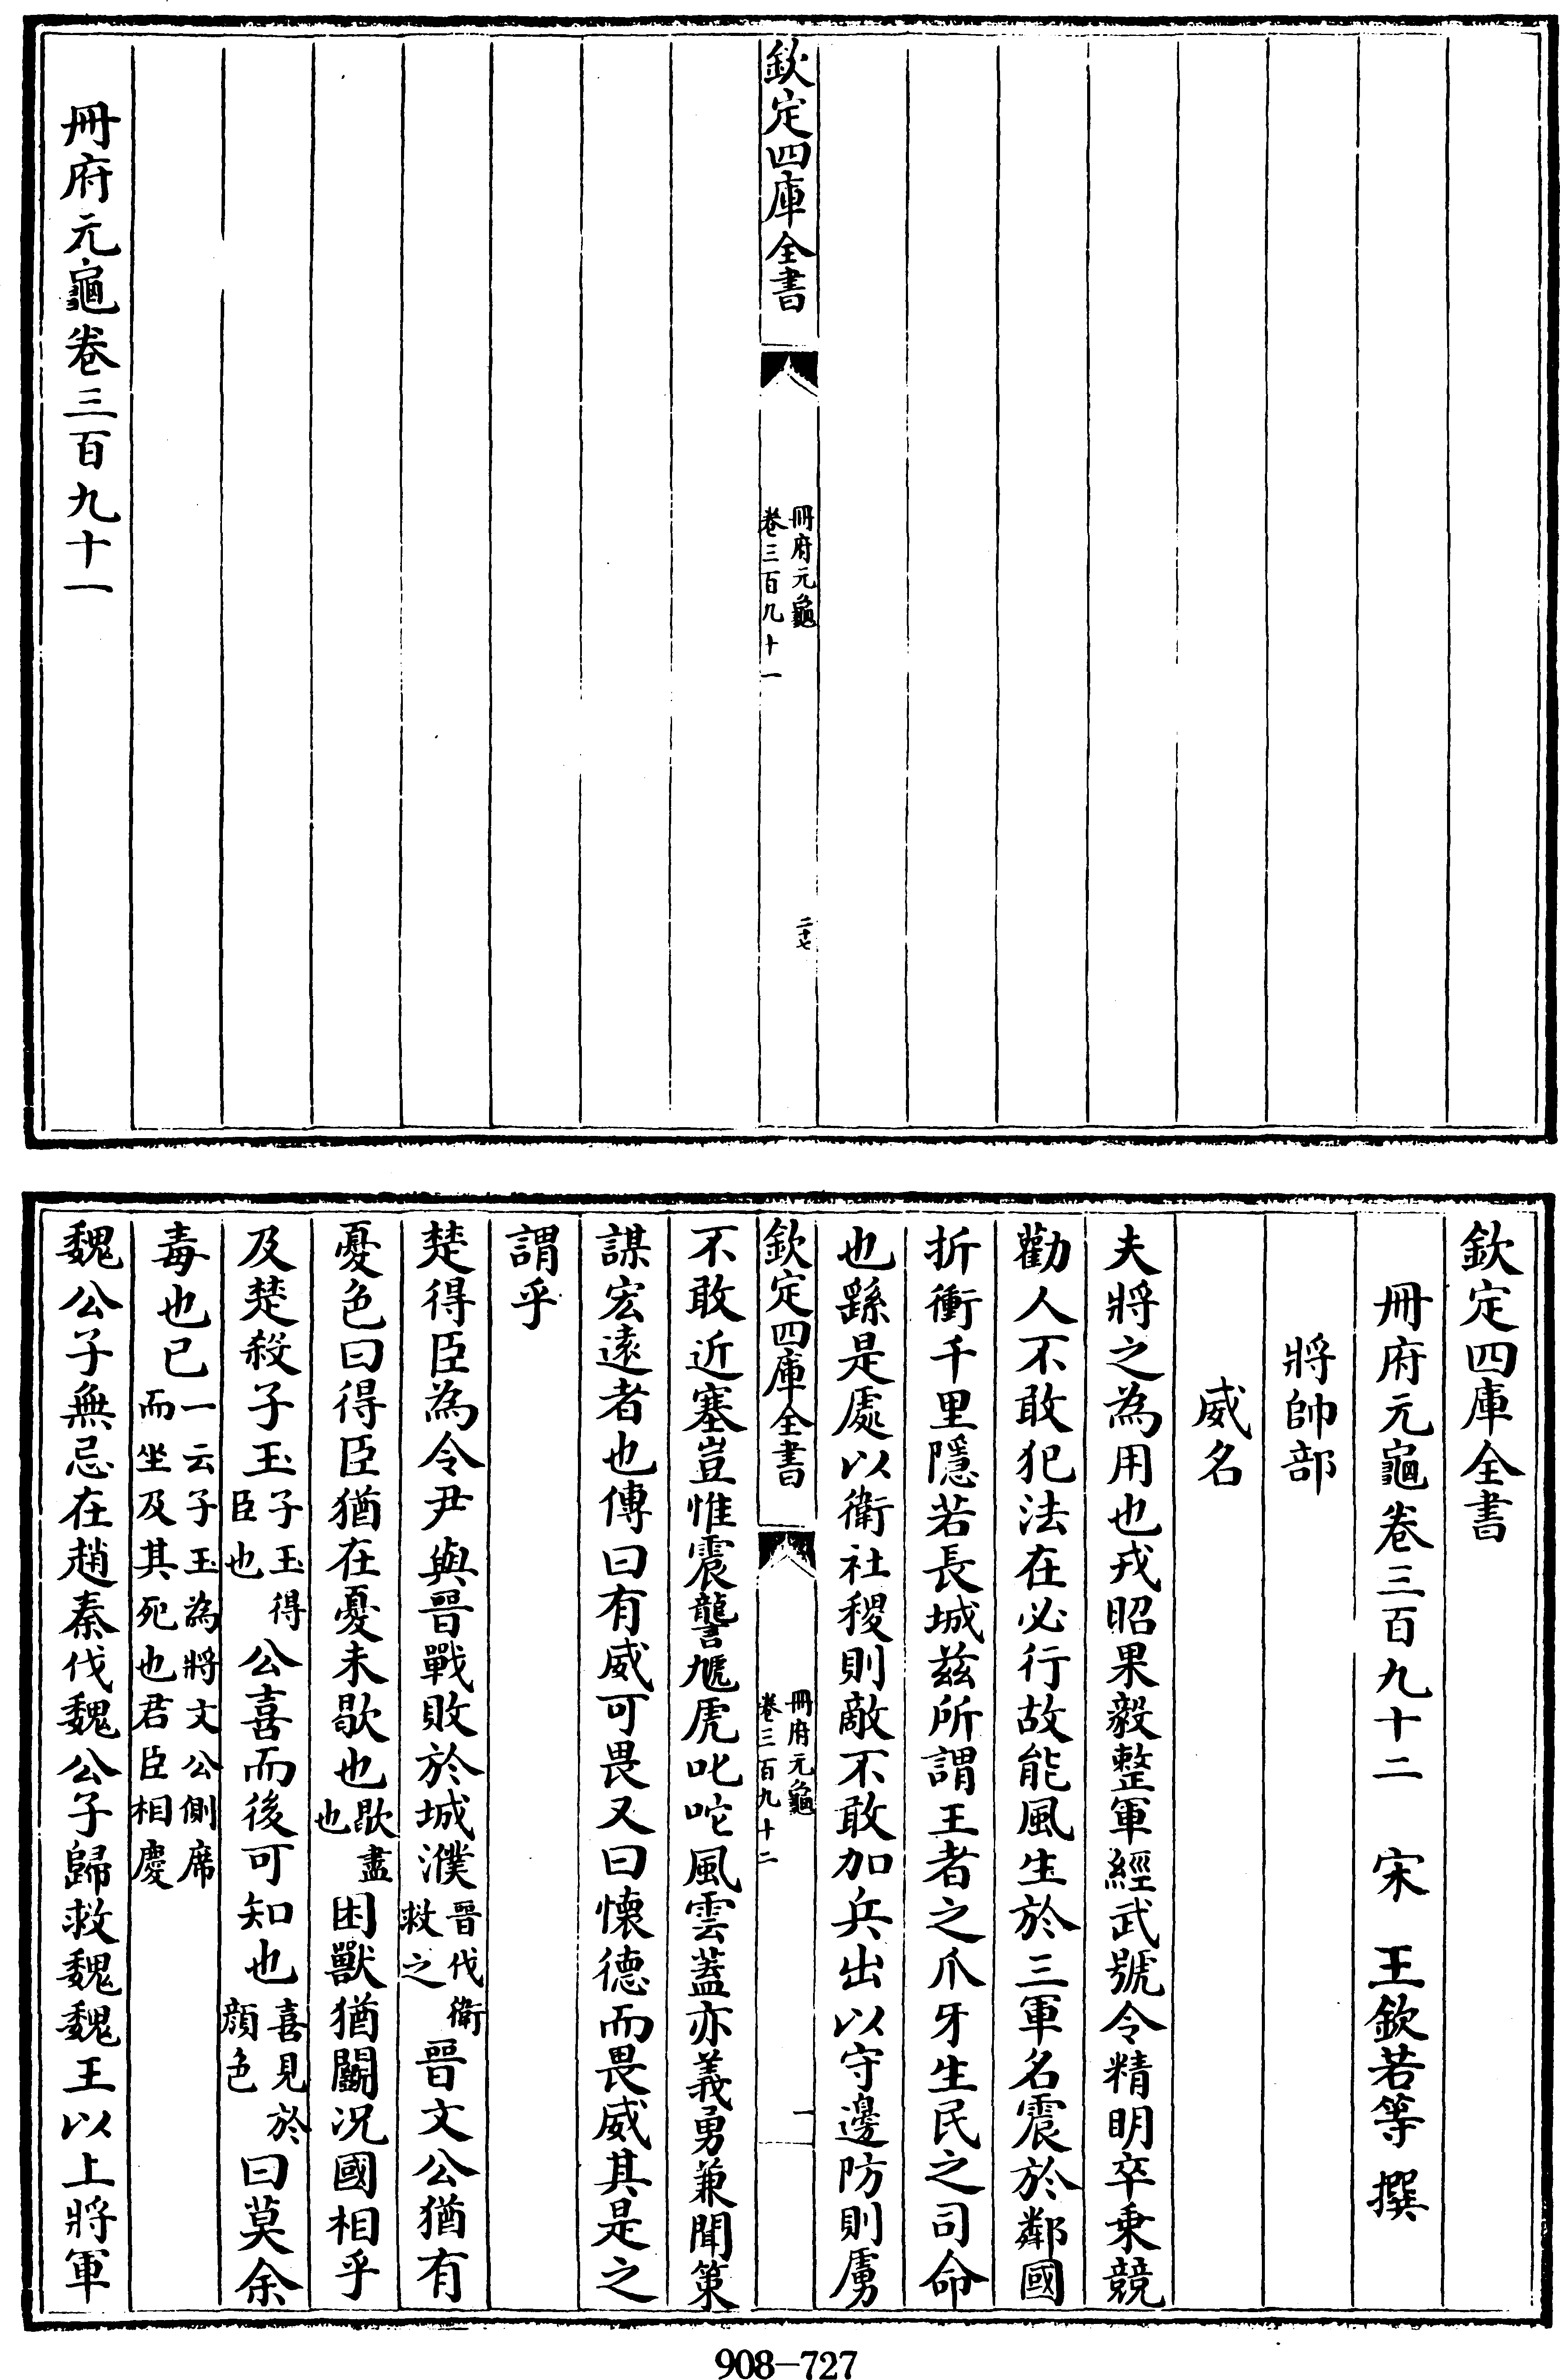 欽定四庫全書
冊府元龜
卷三百九十一
二十七
冊府元龜卷三百九十一
欽定四庫全書
冊府元龜卷三百九十二　宋　王欽若等　撰
將帥部
威名
夫將之為用也戎昭果毅整軍經武號令精明卒乗競
勸人不敢犯法在必行故能風生於三軍名震於鄰國
折衝千里隱若長城兹所謂王者之爪牙生民之司命
也繇是處以衛社稷則敵不敢加兵出以守邊防則虜
欽定四庫全書
冊府元龜
卷三百九十二
一
不敢近塞豈惟震讋虓虎叱咤風雲蓋亦義勇兼聞策
謀宏逺者也傳曰有威可畏又曰懐德而畏威其是之
謂乎
楚得臣為令尹與晉戰敗於城濮晉伐衛救之晉文公猶有
憂色曰得臣猶在憂未歇也歇盡也困獸猶鬭况國相乎
及楚殺子玉子玉得臣也公喜而後可知也喜見於顔色曰莫余
毒也已一云子玉為將文公側席而坐及其死也君臣相慶
魏公子無忌在趙秦伐魏公子歸救魏魏王以上將軍
908-727